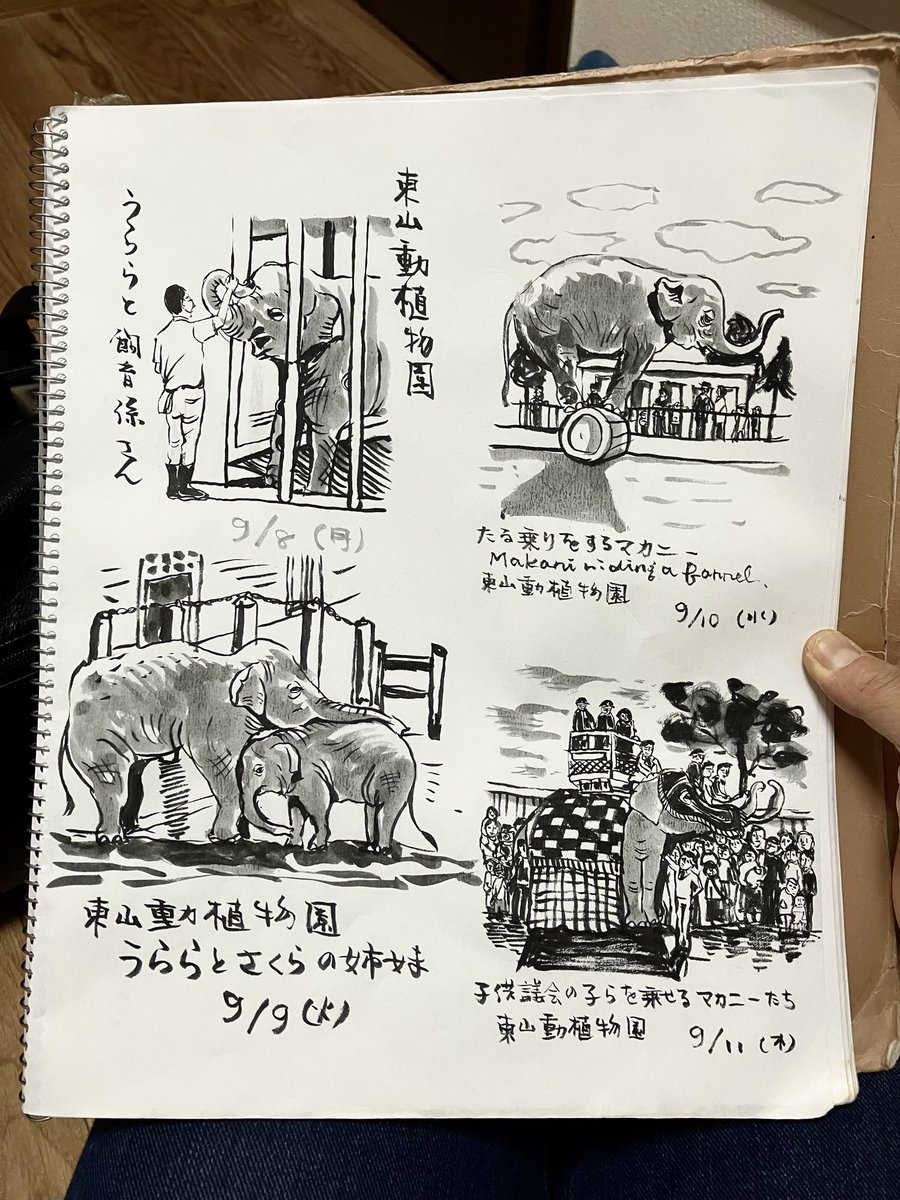 東山動植物園
うららと飼育係さん
9/8(月)
たる乗りをするマカニー
Makani riding a barrel.
東山動植物園
9/10(水)
東山動植物園
うららとさくらの姉妹
9/9(火)
子供議会の子らを乗せるマカニーたち
東山動植物園
9/11(木)